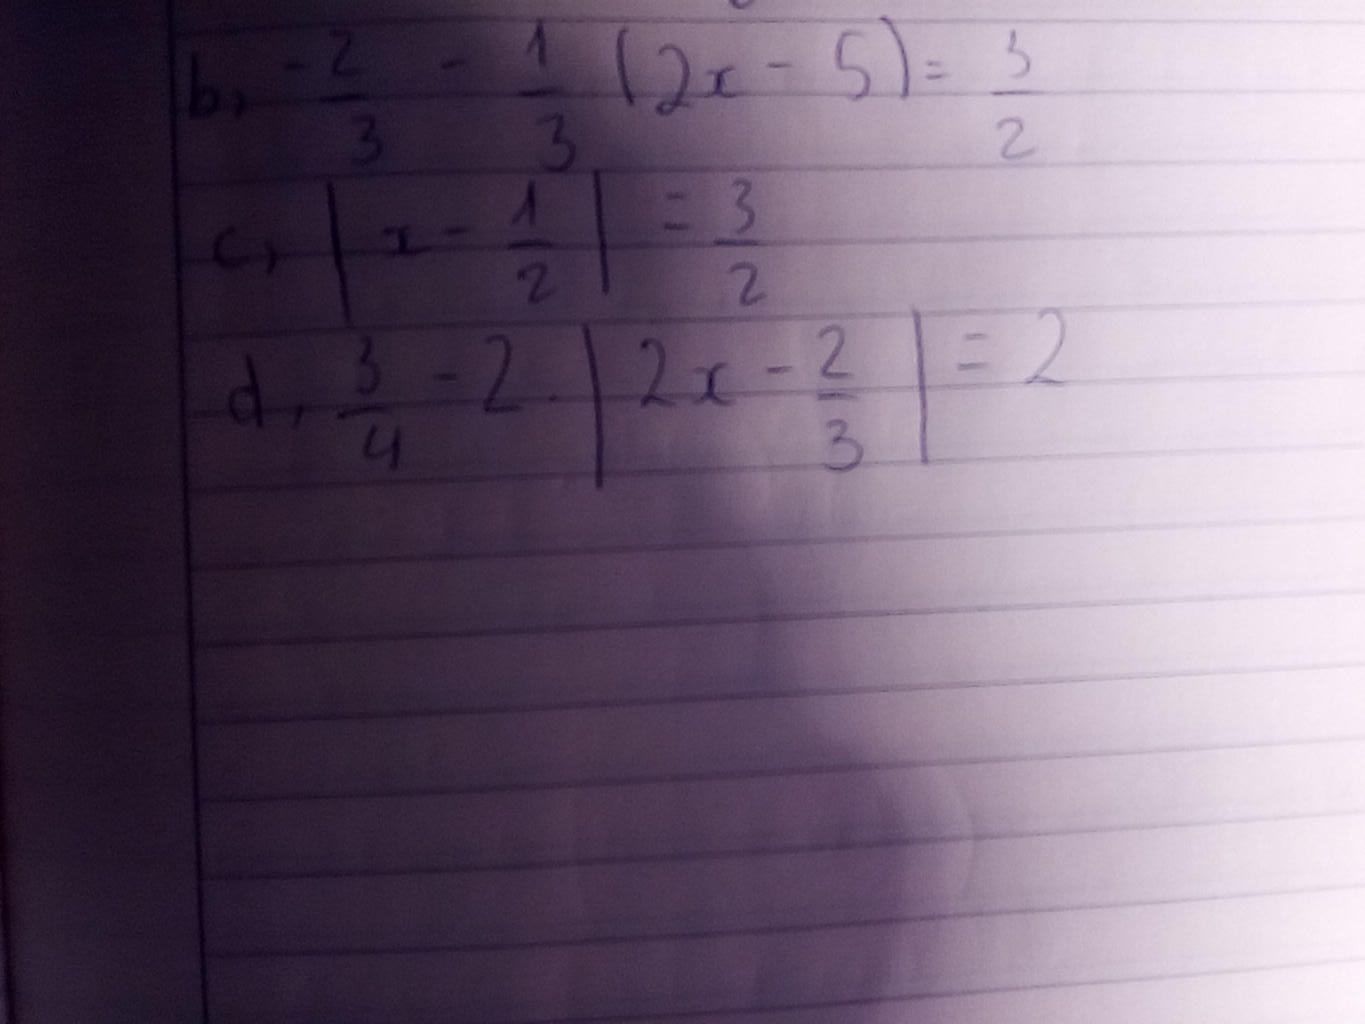 b, -2/3 - 1/3 (2x - 5) = 3/2
c, |x - 1/2| = 3/2
d, 3/4 - 2 . |2x - 2/3| = 2